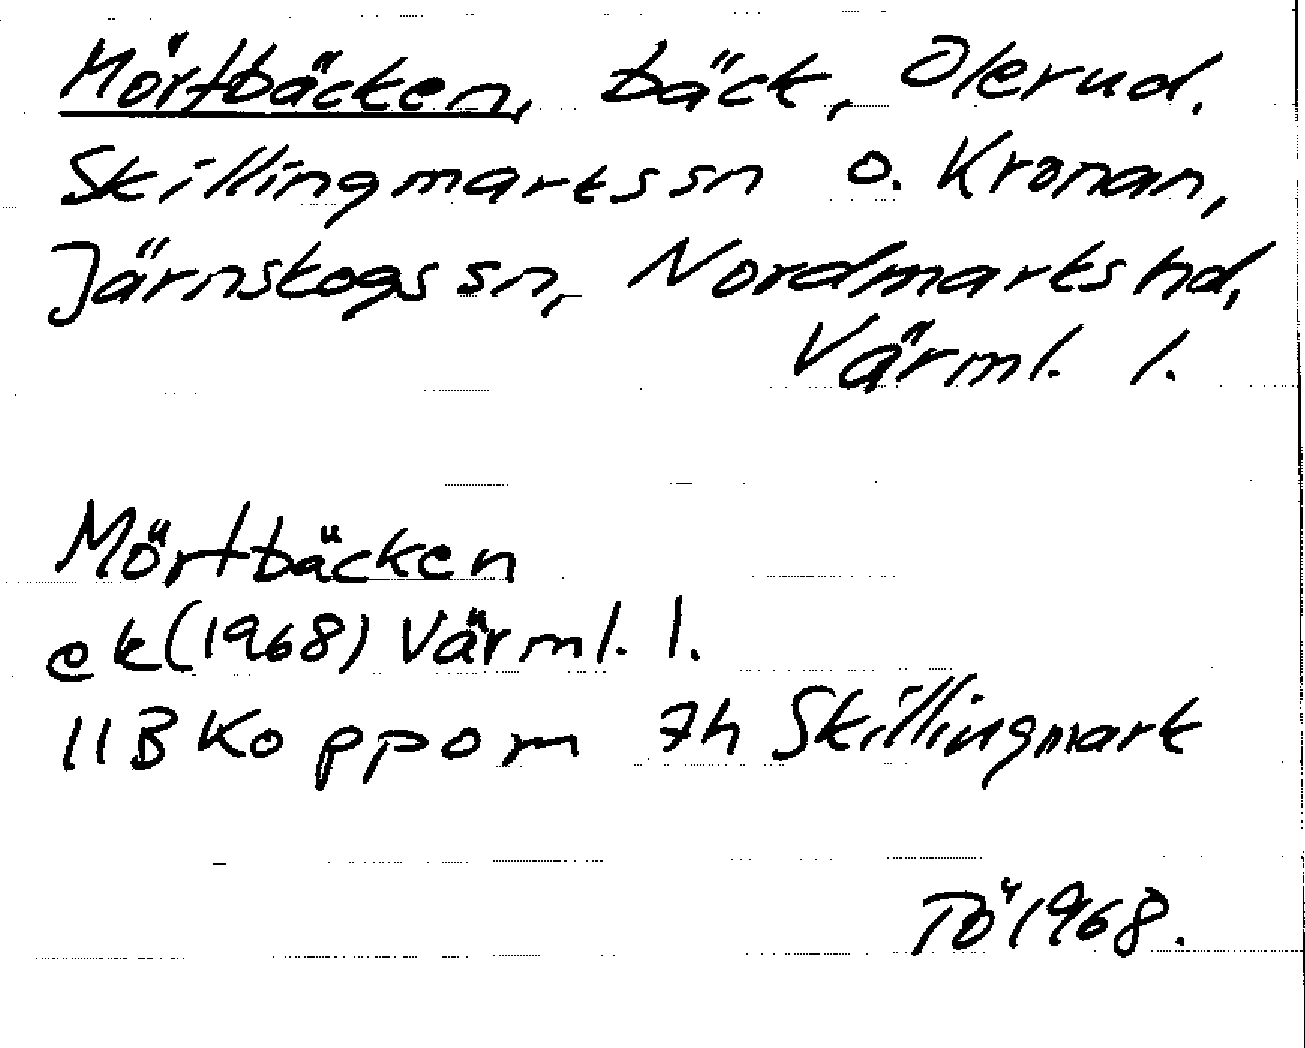 Mörtbäcken, bäck, Olerud,
Skillingmarks sn o. Kronan,
Järnskogs sn, Nordmarks hd,
Värml. l.
Mörtbäcken
ek(1968) Värml. l.
11B Koppom 7h Skillingmark
TÖ 1968.